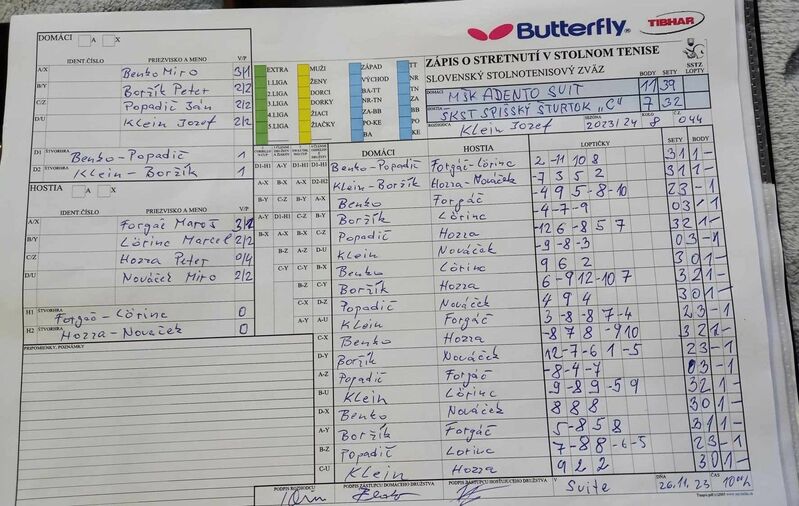 Butterfly
TIBHAR
DOMÁCI A X
ZÁPIS O STRETNUTÍ V STOLNOM TENISE
SLOVENSKÝ STOLNOTENISOVÝ ZVÄZ
SSTZ
IDENT.ČÍSLO PRIEZVISKO A MENO V/P
A/X Benko Miro 3/1
B/Y Boržík Peter 2/2
C/Z Popadič Ján 2/2
D/U Klein Jozef 2/2
EXTRA
1.LIGA
2.LIGA
3.LIGA
4.LIGA
5.LIGA
MUŽI
ŽENY
DORCI
DORKY
ŽIACI
ŽIAČKY
ZÁPAD
VÝCHOD
BA-TT
NR-TN
ZA-BB
PO-KE
BA
TT
NR
TN
ZA
BB
PO
KE
BODY SETY LOPTY
DOMÁCI MŠK ADENTO SVIT 11 39
HOSTIA SKST SPIŠSKÝ ŠTVRTOK „C" 7 32
ROZHODCA Klein Jozef SEZÓNA 2023/24 KOLO 8 Č.Z. C044
D1 ŠTVORHRA Benko-Popadič 1
D2 ŠTVORHRA Klein-Boržík 1
HOSTIA A X
IDENT.ČÍSLO PRIEZVISKO A MENO V/P
A/X Forgáč Maroš 3/1
B/Y Lörinc Marcel 2/2
C/Z Hozza Peter 0/4
D/U Nováček Miro 2/2
H1 ŠTVORHRA Forgáč-Lörinc 0
H2 ŠTVORHRA Hozza-Nováček 0
PRIPOMIENKY, POZNÁMKY
DOMÁCI HOSTIA LOPTIČKY SETY BODY
Benko-Popadič Forgáč-Lörinc 2 -11 10 8 3 1 1 -
Klein-Boržík Hozza-Nováček -7 3 5 2 3 1 1 -
Benko Forgáč -4 9 5 -8 -10 2 3 - 1
Boržík Lörinc -4 -7 -9 0 3 - 1
Popadič Hozza -12 6 -8 5 7 3 2 1 -
Klein Nováček -9 -8 -3 0 3 - 1
Benko Lörinc 9 6 2 3 0 1 -
Boržík Hozza 6 -9 12 -10 7 3 2 1 -
Popadič Nováček 4 9 4 3 0 1 -
Klein Forgáč 3 -8 8 7 -4 2 3 - 1
C-X Benko Hozza -8 7 8 -9 10 3 2 1 -
D-Y Boržík Nováček 12 -7 -6 1 -5 2 3 - 1
A-Z Popadič Forgáč -8 -4 -7 0 3 - 1
B-U Klein Lörinc 9 -8 9 -5 9 3 2 1 -
D-X Benko Nováček 8 8 8 3 0 1 -
A-Y Boržík Forgáč 5 -8 5 8 3 1 1 -
B-Z Popadič Lörinc 7 -8 8 -6 -5 2 3 - 1
C-U Klein Hozza 9 2 2 3 0 1 -
PODPIS ROZHODCU PODPIS ZÁSTUPCU DOMÁCEHO DRUŽSTVA PODPIS ZÁSTUPCU HOSŤUJÚCEHO DRUŽSTVA V Svite DŇA 26.11.23 ČAS 10.00 h